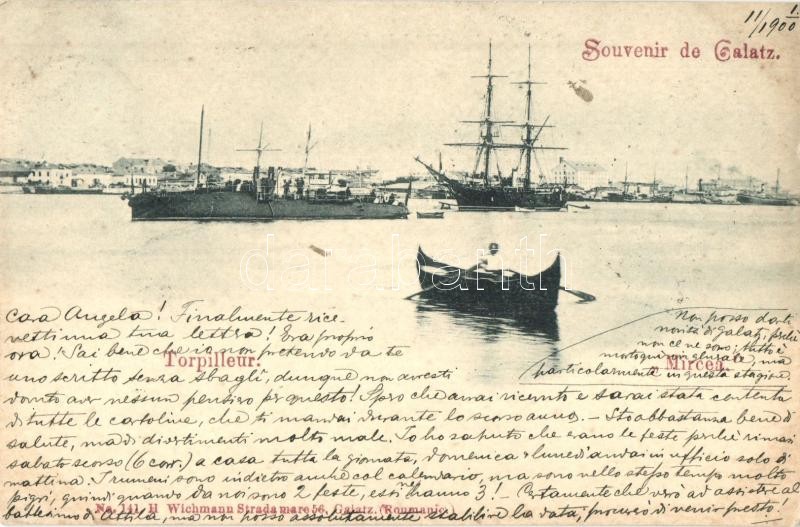 11/1 1900
Souvenir de Galatz.
darabanth
cara Angela! Finalmente rice-
vetti una tua lettera! Era proprio
ora! Sai bene che io non pretendo da te
uno scritto senza sbagli, dunque non avresti
dovuto aver nessun pensiero per questo! Spero che avrai ricevuto e sarai stata contenta
di tutte le cartoline, che ti mandai durante lo scorso anno. – Sto abbastanza bene di
salute, ma di divertimenti molto male. Io ho saputo che erano le feste perchè rimasi
sabato scorso (6 corr.) a casa tutta la giornata, domenica e lunedì andai in ufficio solo di
mattina. I rumeni sono indietro anche col calendario, ma sono nello stesso tempo molto
pigri, quindi quando da noi sono 2 feste, essi hanno 3! – Certamente che verò ad assistere al
battesimo di Attila, ma non posso assolutamente stabilire la data, procurerò di venir presto.
Non posso darti
novità di Galatz, perchè
non ce ne sono; tutto è
morto qui in generale, ma
particolarmente in questa stagione.
Torpilleur.
„Mircea„
No. 141. H. Wichmann Strada mare 56, Galatz. (Roumanie.)